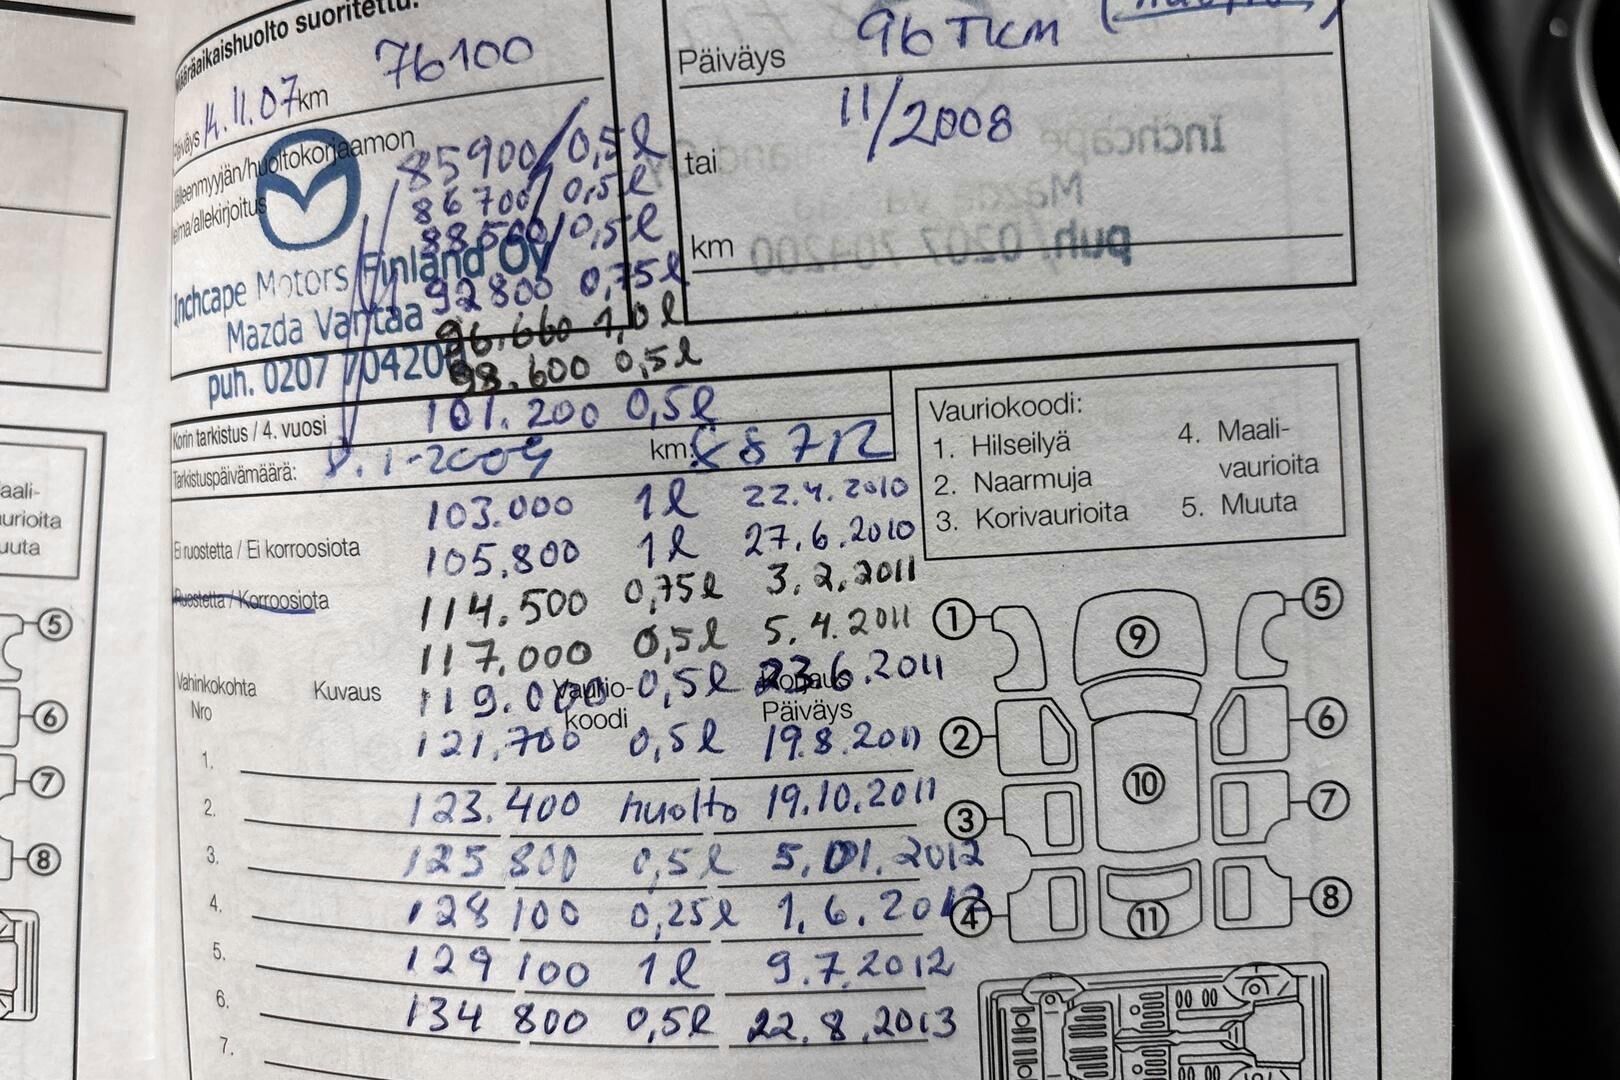 Määräaikaishuolto suoritettu:
Päiväys 14.11.07 km 76100
Jälleenmyyjän/huoltokorjaamon
leima/allekirjoitus
85900 0,5 l
86 700 0,5 l
88 500 0,5 l
Inchcape Motors Finland Oy
92800 0,75 l
Mazda Vantaa
96.660 1,0 l
puh. 0207 704200
98.600 0,5 l
101.200 0,5 l
Korin tarkistus / 4. vuosi
Tarkistuspäivämäärä: 8.1-2009 km: 88712
103.000 1 l 22.4.2010
Ei ruostetta / Ei korroosiota
105.800 1 l 27.6.2010
Ruostetta / Korroosiota
114.500 0,75 l 3.2.2011
117.000 0,5 l 5.4.2011
Vahinkokohta Nro
Kuvaus
Vauriokoodi
Korjaus Päiväys
119.000 0,5 l 23.6.2011
121.700 0,5 l 19.8.2011
1.
2. 123.400 huolto 19.10.2011
3. 125 800 0,5 l 5.01.2012
4. 128 100 0,25 l 1.6.2012
5. 129 100 1 l 9.7.2012
6. 134 800 0,5 l 22.8.2013
7.
Päiväys 96 TKM (huolto)
11/2008
tai
km
Vauriokoodi:
1. Hilseilyä
2. Naarmuja
3. Korivaurioita
4. Maali-
vaurioita
5. Muuta
1
2
3
4
5
6
7
8
9
10
11
aali-
urioita
uuta
5
6
7
8